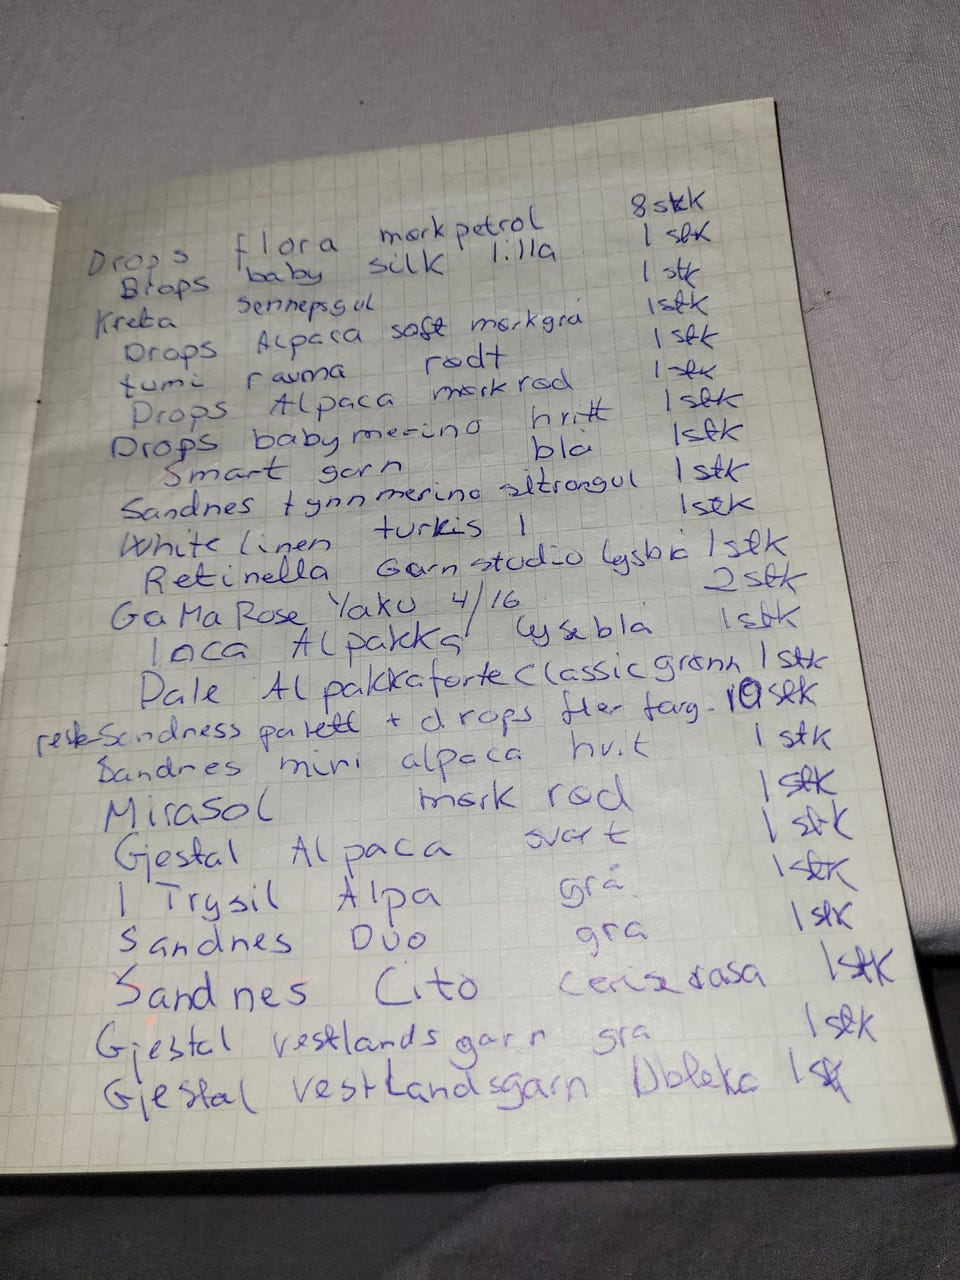 Drops flora mørk petrol 8 stk
Drops baby silk lilla 1 stk
Kreta sennepsgul 1 stk
Drops Alpaca soft mørkgrå 1 stk
tumi rauma rødt 1 stk
Drops Alpaca mørk rød 1 stk
Drops baby merino hvitt 1 stk
Smart garn blå 1 stk
Sandnes tynn merino sitrongul 1 stk
White linen turkis 1 1 stk
Retinella Garnstudio lysblå 1 stk
GaMaRose Yaku 4/16 2 stk
Inca Alpakka lyseblå 1 stk
Dale Alpakka forte classic grønn 1 stk
rest Sandness palett + drops fler farg. 10 stk
Sandnes mini alpaca hvit 1 stk
Mirasol mørk rød 1 stk
Gjestal Alpaca svart 1 stk
1 Trysil Alpa grå 1 stk
Sandnes Duo grå 1 stk
Sandnes Cito cerise rosa 1 stk
Gjestal vestlandsgarn grå 1 stk
Gjestal vestlandsgarn 1 stk